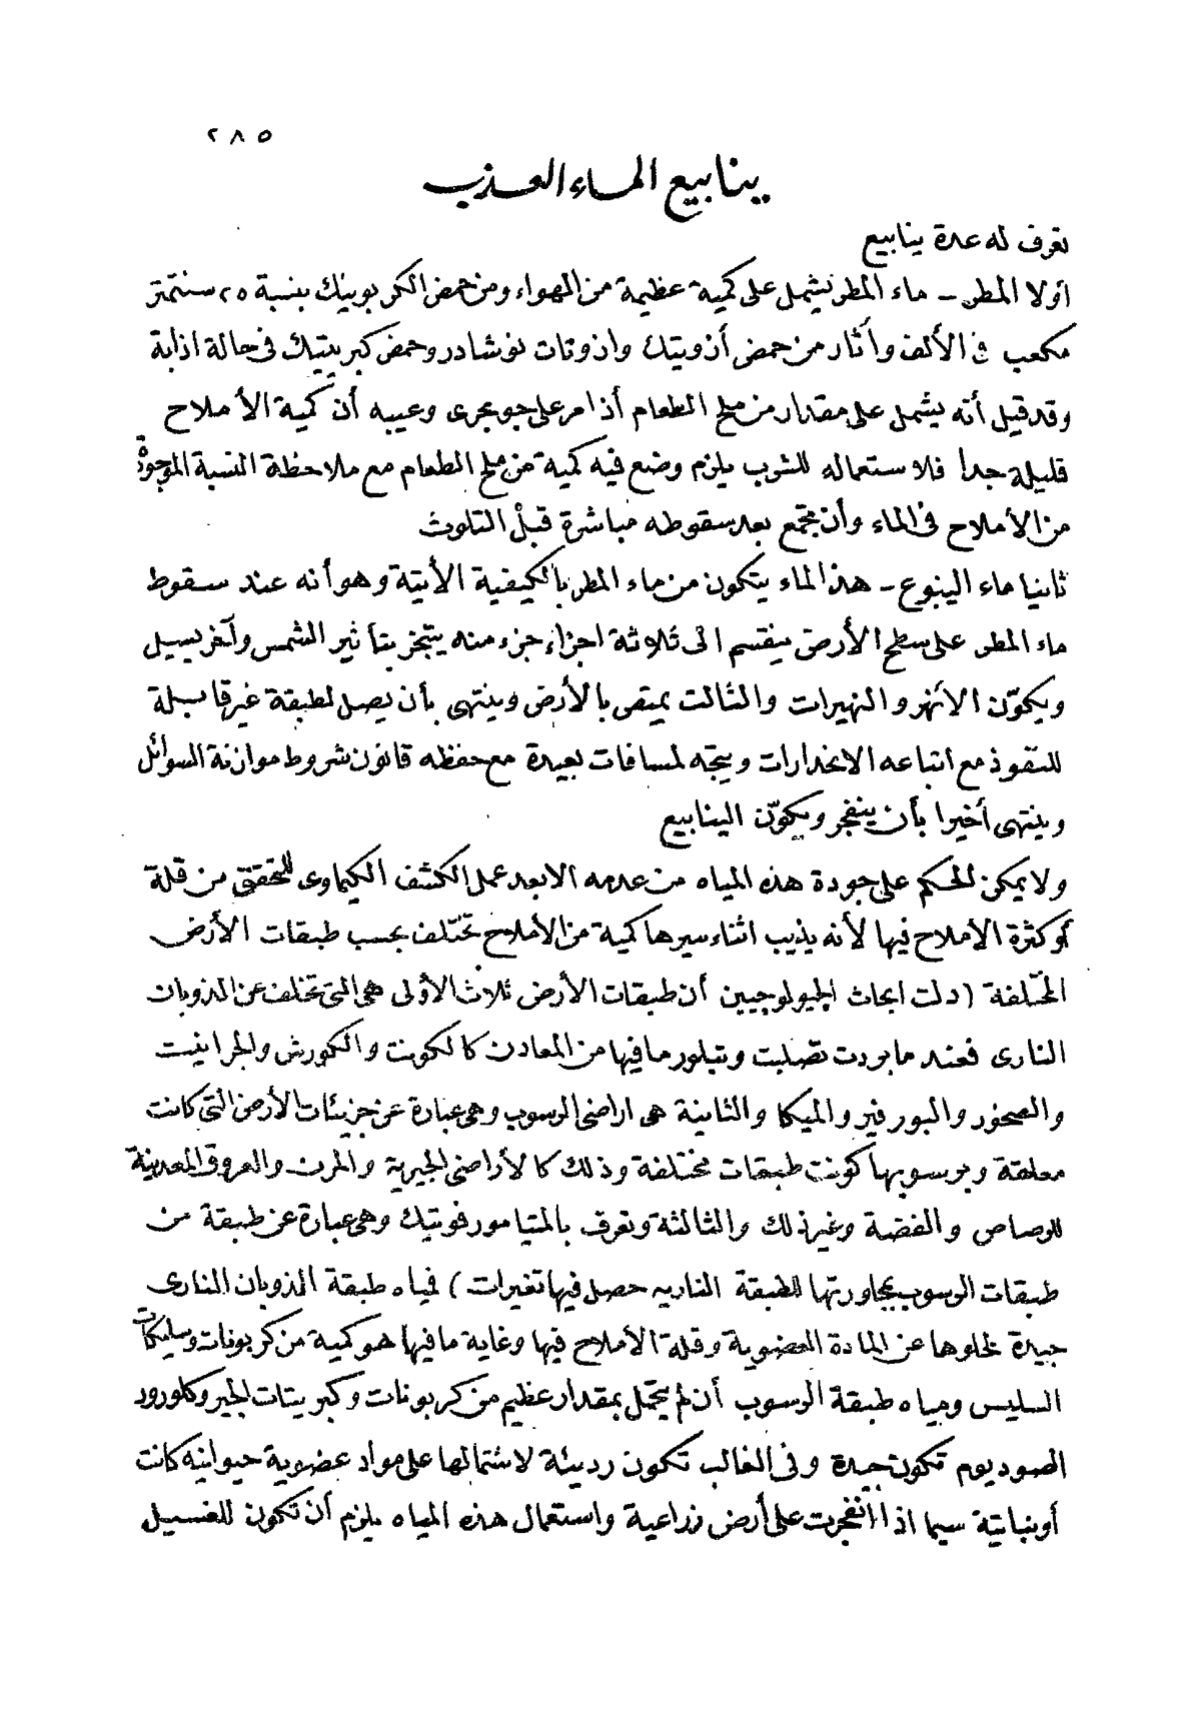 ٢٨٥
ينابيع الماء العذب
تعرف له عدة ينابيع
اولا المطر - ماء المطر يشمل على كمية عظيمة من الهواء ومن حمض الكربونيك بنسبة ٢٥ سنتمتر
مكعب فى الألف وآثار من حمض أزوتيك وازوتات نوشادر وحمض كبريتيك فى حالة اذابة
وقد قيل أنه يشمل على مقدار من ملح الطعام أذا مر على جو بحرى وعيبه أن كمية الأملاح
قليلة جدا فلاستعماله للشرب يلزم وضع فيه كمية من ملح الطعام مع ملاحظة النسبة الموجودة
من الأملاح فى الماء وأن يجمع بعد سقوطه مباشرة قبل التلوث
ثانيا ماء الينبوع - هذا الماء يتكون من ماء المطر بالكيفية الأتية وهو أنه عند سقوط
ماء المطر على سطح الأرض ينقسم الى ثلاثة اجزاء جزء منه يتبخر بتأثير الشمس وآخر يسيل
ويكوّن الأنهر والنهيرات والثالث يمتص بالأرض وينتهى بأن يصل لطبقة غير قابلة
للنفوذ مع اتباعه الانحدارات ويتجه لمسافات بعيدة مع حفظه قانون شروط موازنة السوائل
وينتهى أخيرا بأن ينفجر ويكوّن الينابيع
ولا يمكن الحكم على جودة هذه المياه من عدمه الابعد عمل الكشف الكيماوى للتحقق من قلة
أو كثرة الأملاح فيها لأنه يذيب اثناء سيرها كمية من الأملاح تختلف بحسب طبقات الأرض
المختلفة (دلت ابحاث الجيولوجيين أن طبقات الأرض ثلاث الأولى هى التى تخلف عن الذوبان
النارى فعند ما بردت تصلبت وتبلور ما فيها من المعادن كالكونت والكورش والجرانيت
والصخور والبورفير والميكا والثانية هى اراضى الرسوب وهى عبارة عن جزيئات الأرض التى كانت
معلقة وبرسوبها كونت طبقات مختلفة وذلك كالأراضى الجيرية والمرن والعروق المعدنية
للرصاص والفضة وغير ذلك والثالثة وتعرف بالمتيامورفوتيك وهى عبارة عن طبقة من
طبقات الرسوب بمجاورتها للطبقة الناريه حصل فيها تغيرات) فمياه طبقة الذوبان النارى
جيدة لخلوها عن المادة العضوية وقلة الأملاح فيها وغاية ما فيها هو كمية من كربونات وسليكات
السليس ومياه طبقة الرسوب أن لم يحمل بمقدار عظيم من كربونات وكبريتات الجير وكلورور
الصوديوم تكون جيدة وفى الغالب تكون رديئة لاشتمالها على مواد عضوية حيوانيه كانت
أو نباتية سيما اذا انفجرت على أرض زراعية واستعمال هذه المياه يلزم أن تكون للغسيل